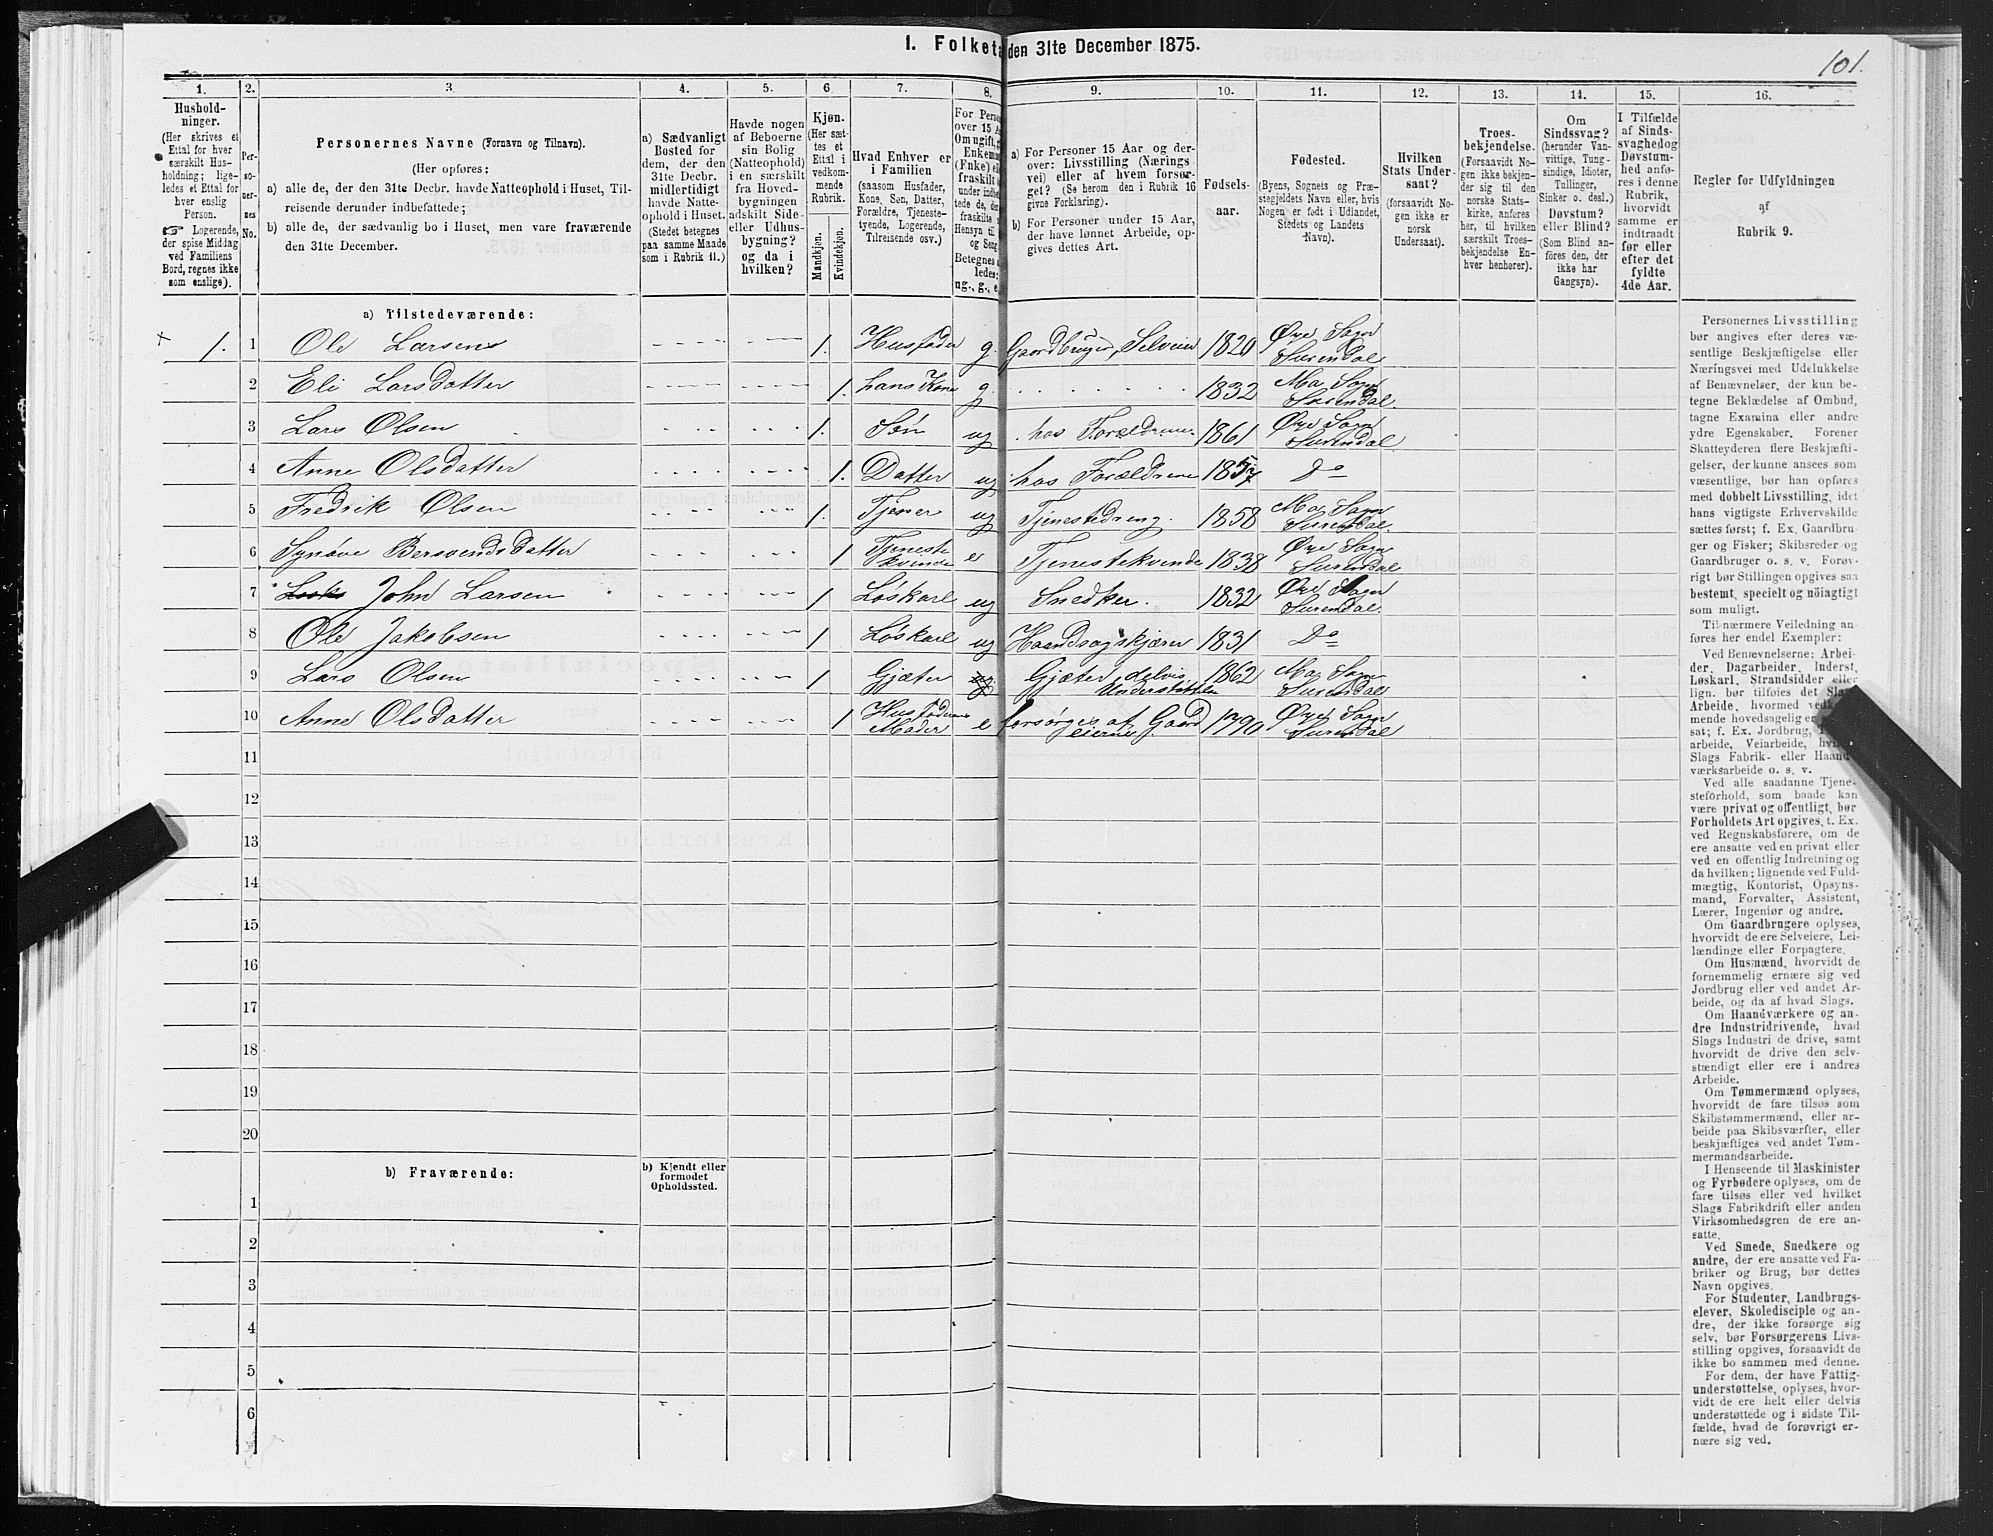 I. Folketæ den 31te December 1875.
101.
1. 2. 3. 4. 5. 6 7. 8. 9. 10. 11. 12. 13. 14. 15. 16.
Hushold-
ninger.
(Her skrives et
Ettal for hver
særskilt Hus-
holdning; lige-
ledes et Ettal for
hver enslig
Person.
☞ Logerende,
der spise Middag
ved Familiens
Bord, regnes ikke
som enslige).
Per-
so-
ner-
nes
No.
Personernes Navne (Fornavn og Tilnavn).
(Her opføres:
a) alle de, der den 31te Decbr. havde Natteophold i Huset, Til-
reisende derunder indbefattede;
b) alle de, der sædvanlig bo i Huset, men vare fraværende
den 31te December.
a) Sædvanligt
Bosted for
dem, der den
31te Decbr.
midlertidigt
havde Natte-
ophold i Huset.
(Stedet betegnes
paa samme Maade
som i Rubrik 11.)
Havde nogen
af Beboerne
sin Bolig
(Natteophold)
i en særskilt
fra Hoved-
bygningen
adskilt Side-
eller Udhus-
bygning?
og da i
hvilken?
Kjøn.
(Her sæt-
tes et
Ettal i
vedkom-
mende
Rubrik.
Mandkjøn.
Kvindekjøn.
Hvad Enhver er
i Familien
(saasom Husfader,
Kone, Søn, Datter,
Forældre, Tjeneste-
tyende, Logerende,
Tilreisende osv.)
For Perso
over 15 A
Om ugift, g
Enkem
(Fnke) el
fraskilt
under indbe
tede de, der
fraskilte
Hensyn til
og Seng
Betegnes
ledes:
ug., g., e
a) For Personer 15 Aar og der-
over: Livsstilling (Nærings
vei) eller af hvem forsør-
get? (Se herom den i Rubrik 16
givne Forklaring).
b) For Personer under 15 Aar,
der have lønnet Arbeide, op-
gives dettes Art.
Fødsels-
aar.
Fødested.
(Byens, Sognets og Præ-
stegjeldets Navn eller, hvis
Nogen er født i Udlandet,
Stedets og Landets
Navn).
Hvilken
Stats Under-
saat?
(forsaavidt No-
gen ikke er
norsk
Undersaat).
Troes-
bekjendelse.
(Forsaavidt No-
gen ikke bekjen-
der sig til den
norske Stats-
kirke, anføres
her, til hvilken
særskilt Troes-
bekjendelse En-
hver henhører).
Om
Sindssvag?
(herunder Van-
vittige, Tung-
sindige, Idioter,
Tullinger,
Sinker o. desl.)
Døvstum?
eller Blind?
(Som Blind an-
føres den, der
ikke har
Gangsyn).
I Tilfælde
af Sinds-
svaghed og
Døvstum-
hed anfø-
res i denne
Rubrik,
hvorvidt
samme er
indtraadt
før eller
efter det
fyldte
4de Aar.
Regler for Udfyldningen
af
Rubrik 9.
a) Tilstedeværende:
1. 1 Ole Larsen 1. Husfader g. Gaardbruger, Selveier 1820 Øye Sogn Surendal
2 Eli Larsdatter 1. hans Kone g. 1832 Mo Sogn Surendal.
3 Lars Olsen 1. Søn ug hos Forældrene. 1861 Øye Sogn Surendal
4 Anne Olsdatter 1. Datter ug hos Forældrene 1857 Do
5 Fredrik Olsen 1. Tjener ug Tjenestedreng. 1858 Mo Sogn Surendal.
6 Synøve Bersvendsdatter 1 Tjeneste kvinde e Tjenestekvinde 1838 Øye Sogn Surendal
7 John Larsen 1 Løskarl ug Snedker. 1832 Øye Sogn Surendal.
8 Ole Jakobsen 1 Løskarl ug Haandsagskjærer 1831 Do
9 Lars Olsen 1 Gjæter ug Gjæter delvis Understøttelse 1862 Mo Sogn Surendal
10 Anne Olsdatter 1 Husfaderens Moder e forsørges af Gaard eierne 1790 Øye Sogn Surendal
11
12
13
14
15
16
17
18
19
20
b) Fraværende:
b) Kjendt eller
formodet
Opholdssted.
1
2
3
4
5
6
Personernes Livsstilling
bør angives efter deres væ-
sentlige Beskjæftigelse eller
Næringsvei med Udelukkelse
af Benævnelser, der kun be-
tegne Beklædelse af Ombud,
tagne Examina eller andre
ydre Egenskaber. Forener
Skatteyderen flere Beskjæfti-
gelser, der kunne ansees som
væsentlige, bør han opføres
med dobbelt Livsstilling, idet
hans vigtigste Erhvervskilde
sættes først; f. Ex. Gaardbru-
ger og Fisker; Skibsreder og
Gaardbruger o. s. v. Forøv-
rigt bør Stillingen opgives saa
bestemt, specielt og nøiagtigt
som muligt.
Til nærmere Veiledning an-
føres her endel Exempler:
Ved Benævnelserne: Arbei-
der, Dagarbeider, Inderst,
Løskarl, Strandsidder eller
lign. bør tilføies det Slags
Arbeide, hvormed
mende hovedsagelig er
sat; f. Ex. Jordbrug,
arbeide, Veiarbeide,
Slags Fabrik- eller Haand-
værksarbeide o. s. v.
Ved alle saadanne Tjene-
steforhold, som baade kan
være privat og offentligt, bør
Forholdets Art opgives, t. Ex.
ved Regnskabsførere, om de
ere ansatte ved en privat eller
ved en offentlig Indretning og
da hvilken; lignende ved Fuld-
mægtig, Kontorist, Opsyns-
mand, Forvalter, Assistent,
Lærer, Ingeniør og andre.
Om Gaardbrugere oplyses,
hvorvidt de ere Selveiere, Lei-
lændinge eller Forpagtere.
Om Husmænd, hvorvidt de
fornemmelig ernære sig ved
Jordbrug eller ved andet Ar-
beide, og da af hvad Slags.
Om Haandværkere og an-
dre Industridrivende, hvad
Slags Industri de drive, samt
hvorvidt de drive den selv-
stændigt eller ere i andres
Arbeide.
Om Tømmermænd oplyses,
hvorvidt de fare tilsøs som
Skibstømmermænd, eller ar-
beide paa Skibsværfter, eller
beskjæftiges ved andet Tøm-
mermandsarbeide.
I Henseende til Maskinister
og Fyrbødere oplyses, om de
fare tilsøs eller ved hvilket
Slags Fabrikdrift eller anden
Virksomhedsgren de ere an-
satte.
Ved Smede, Snedkere og
andre, der ere ansatte ved Fa-
briker og Brug, bør dettes
Navn opgives.
For Studenter, Landbrugs-
elever, Skoledisciple og an-
dre, der ikke forsørge sig
selv, bør Forsørgerens Livs-
stilling opgives, forsaavidt de
ikke bo sammen med denne.
For dem, der have Fattig-
understøttelse, oplyses, hvor-
vidt de ere helt eller delvis
understøttede og i sidste Til-
fælde, hvad de forøvrigt er-
nære sig ved.